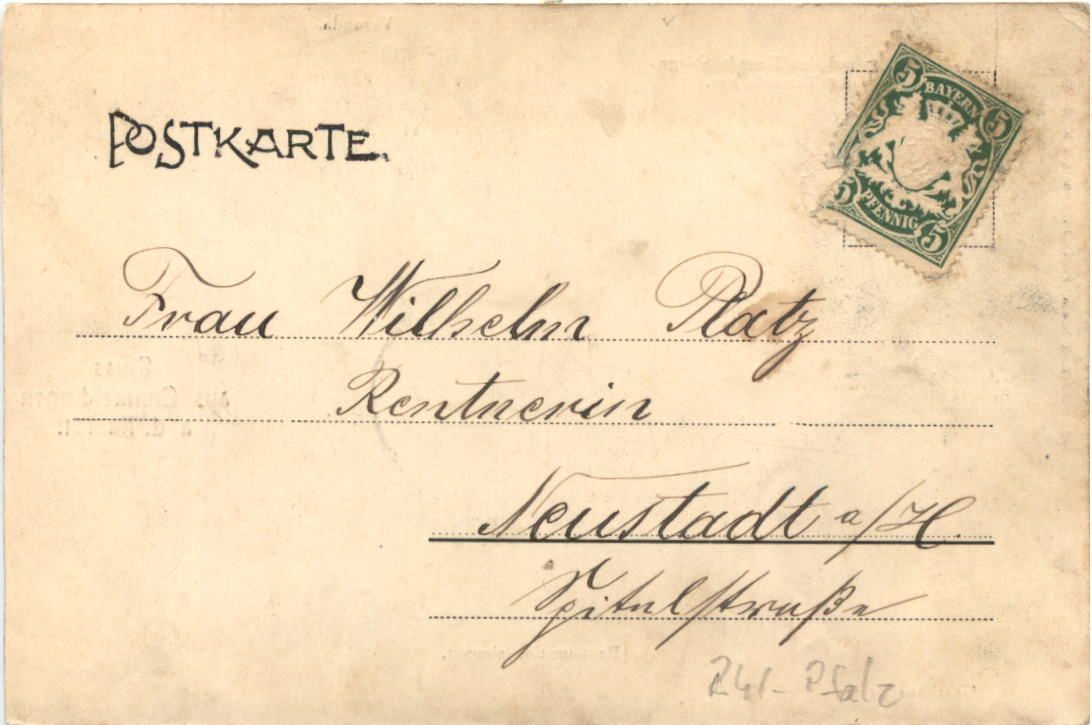 POSTKARTE.
5 BAYERN 5
5 PFENNIG 5
Frau Wilhelm Platz
Rentnerin
Neustadt a/H.
Spitalstraße
Pfalz